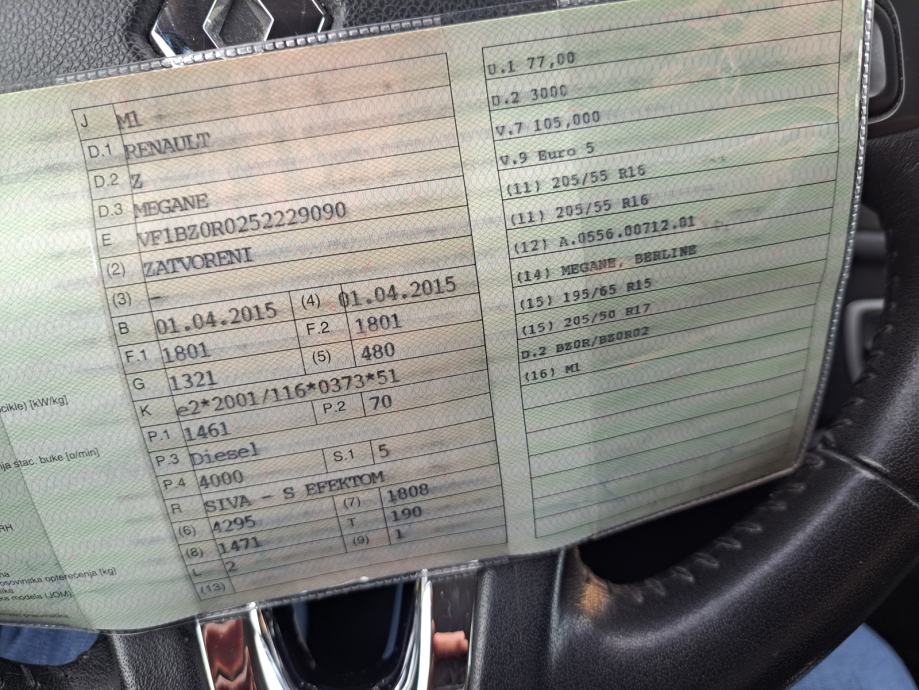 J M1
D.1 RENAULT
D.2 Z
D.3 MEGANE
E VF1BZ0R0252229090
(2) ZATVORENI
(3) -
B 01.04.2015 (4) 01.04.2015
F.1 1801 F.2 1801
G 1321 (5) 480
K e2*2001/116*0373*51
P.1 1461 P.2 70
P.3 Diesel
P.4 4000 S.1 5
R SIVA - S EFEKTOM
(6) 4295 (7) 1808
(8) 1471 T 190
L 2 (9) 1
(13)
U.1 77,00
U.2 3000
V.7 105,000
V.9 Euro 5
(11) 205/55 R16
(11) 205/55 R16
(12) A.0556.00712.01
(14) MEGANE, BERLINE
(15) 195/65 R15
(15) 205/50 R17
D.2 BZ0R/BZ0R02
(16) M1
cikle) [kW/kg]
nja stac. buke [o/min]
RH
osovinska opterećenja [kg]
ka modela (JOM)